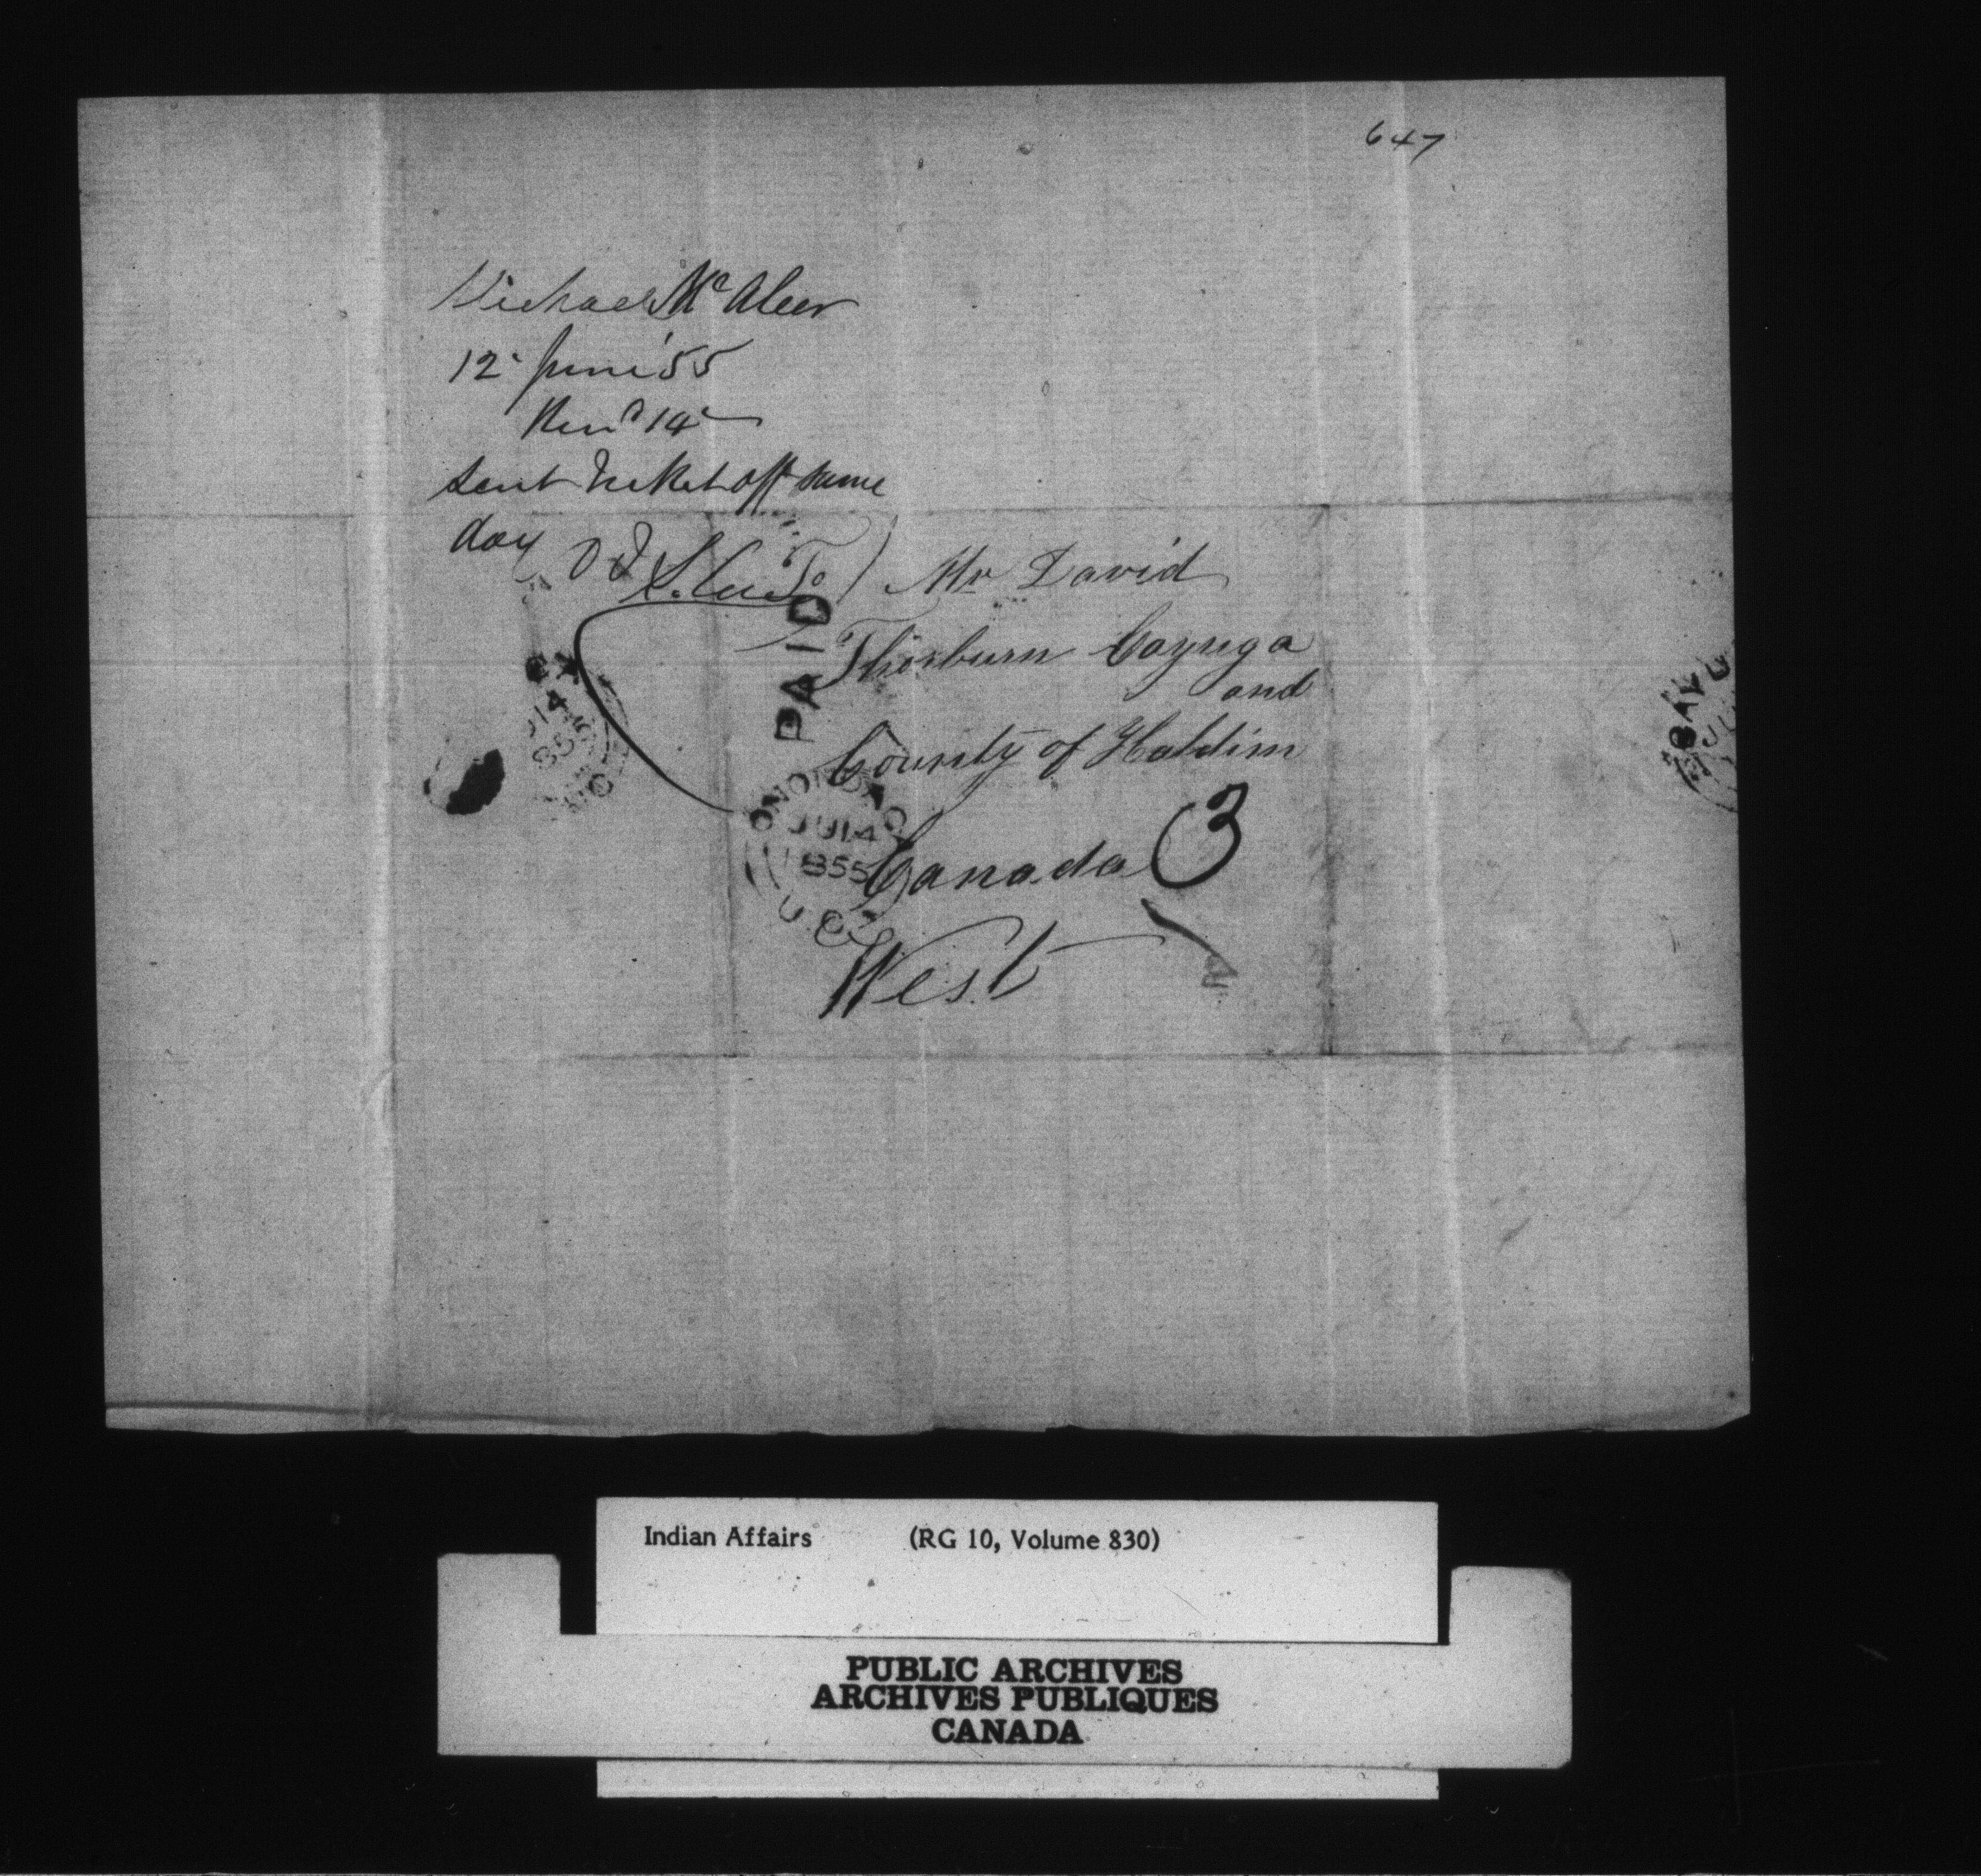 647
Michael McAleer
12 June '55
Recd 14
Sent ticket off same
day DT
To
Mr David
Thorburn Cayuga
and
County of Haldim
Canada
West
3
PAID
ONONDAG
JU 14
1855
U.C.
JU 14
1855
Indian Affairs (RG 10, Volume 830)
PUBLIC ARCHIVES
ARCHIVES PUBLIQUES
CANADA